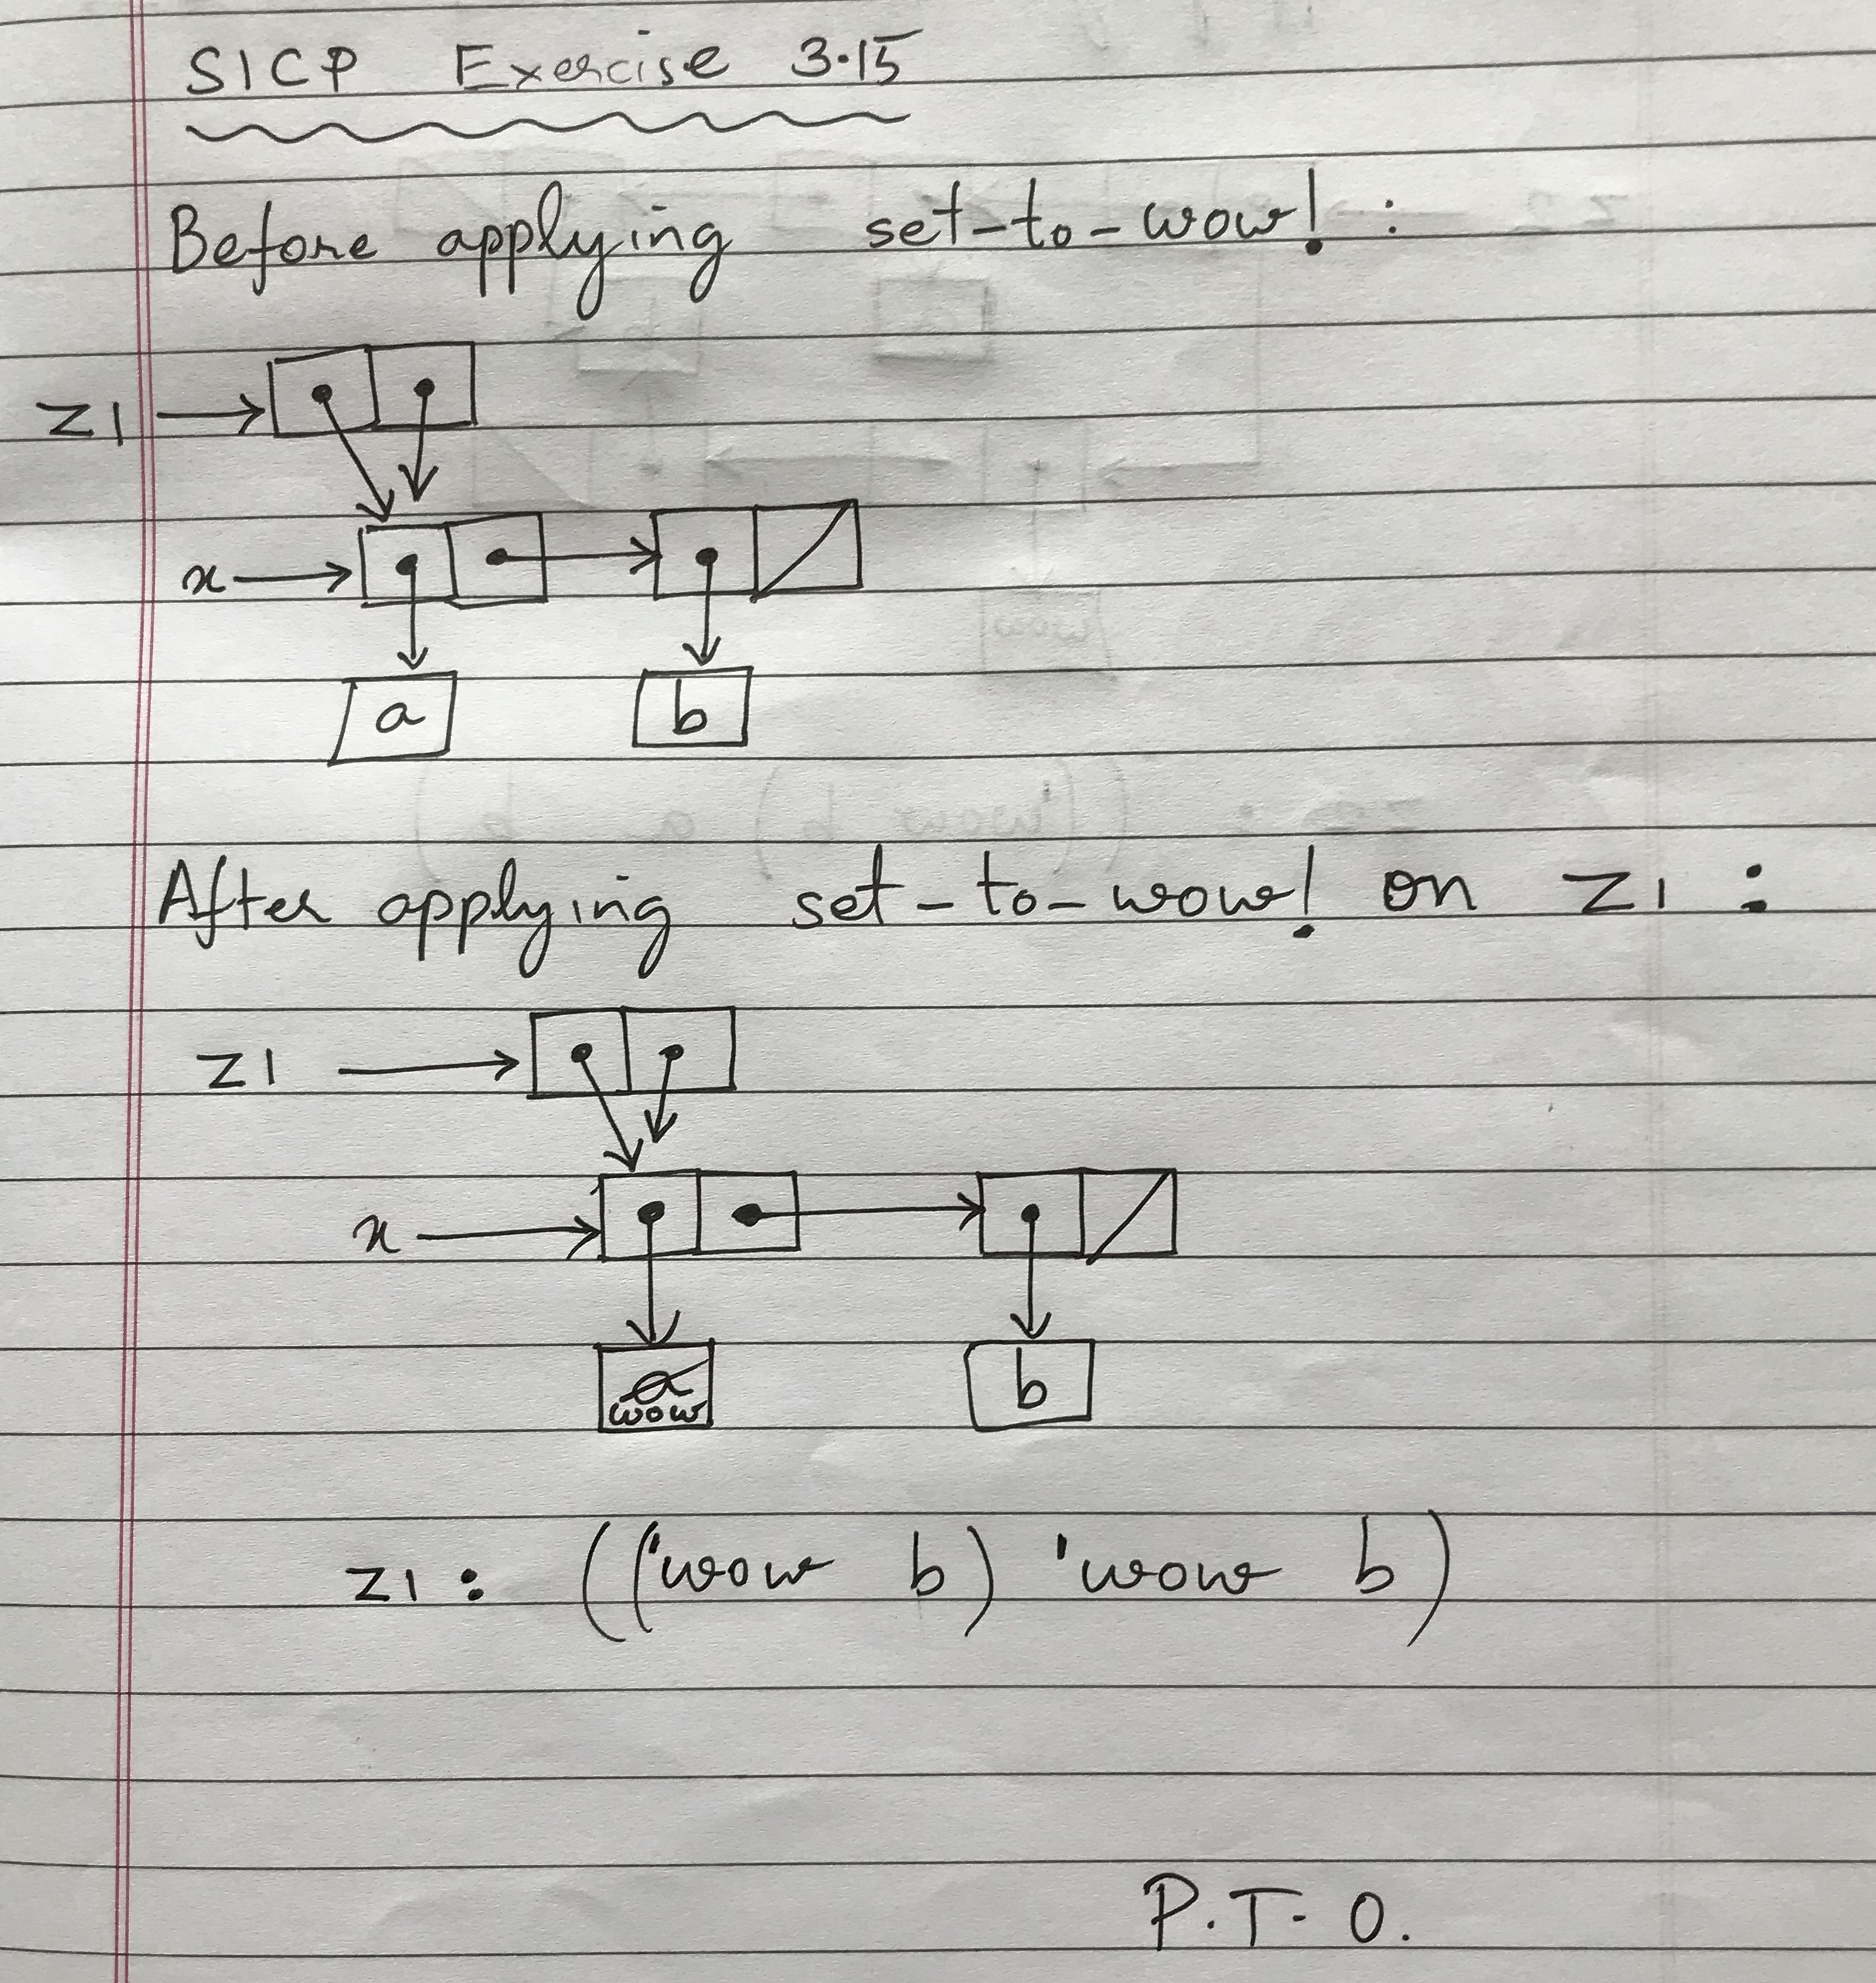 SICP Exercise 3.15
Before applying set-to-wow! :
z1
x
a b
After applying set-to-wow! on z1 :
z1
x
a b
wow
z1 : (('wow b) 'wow b)
P.T.O.